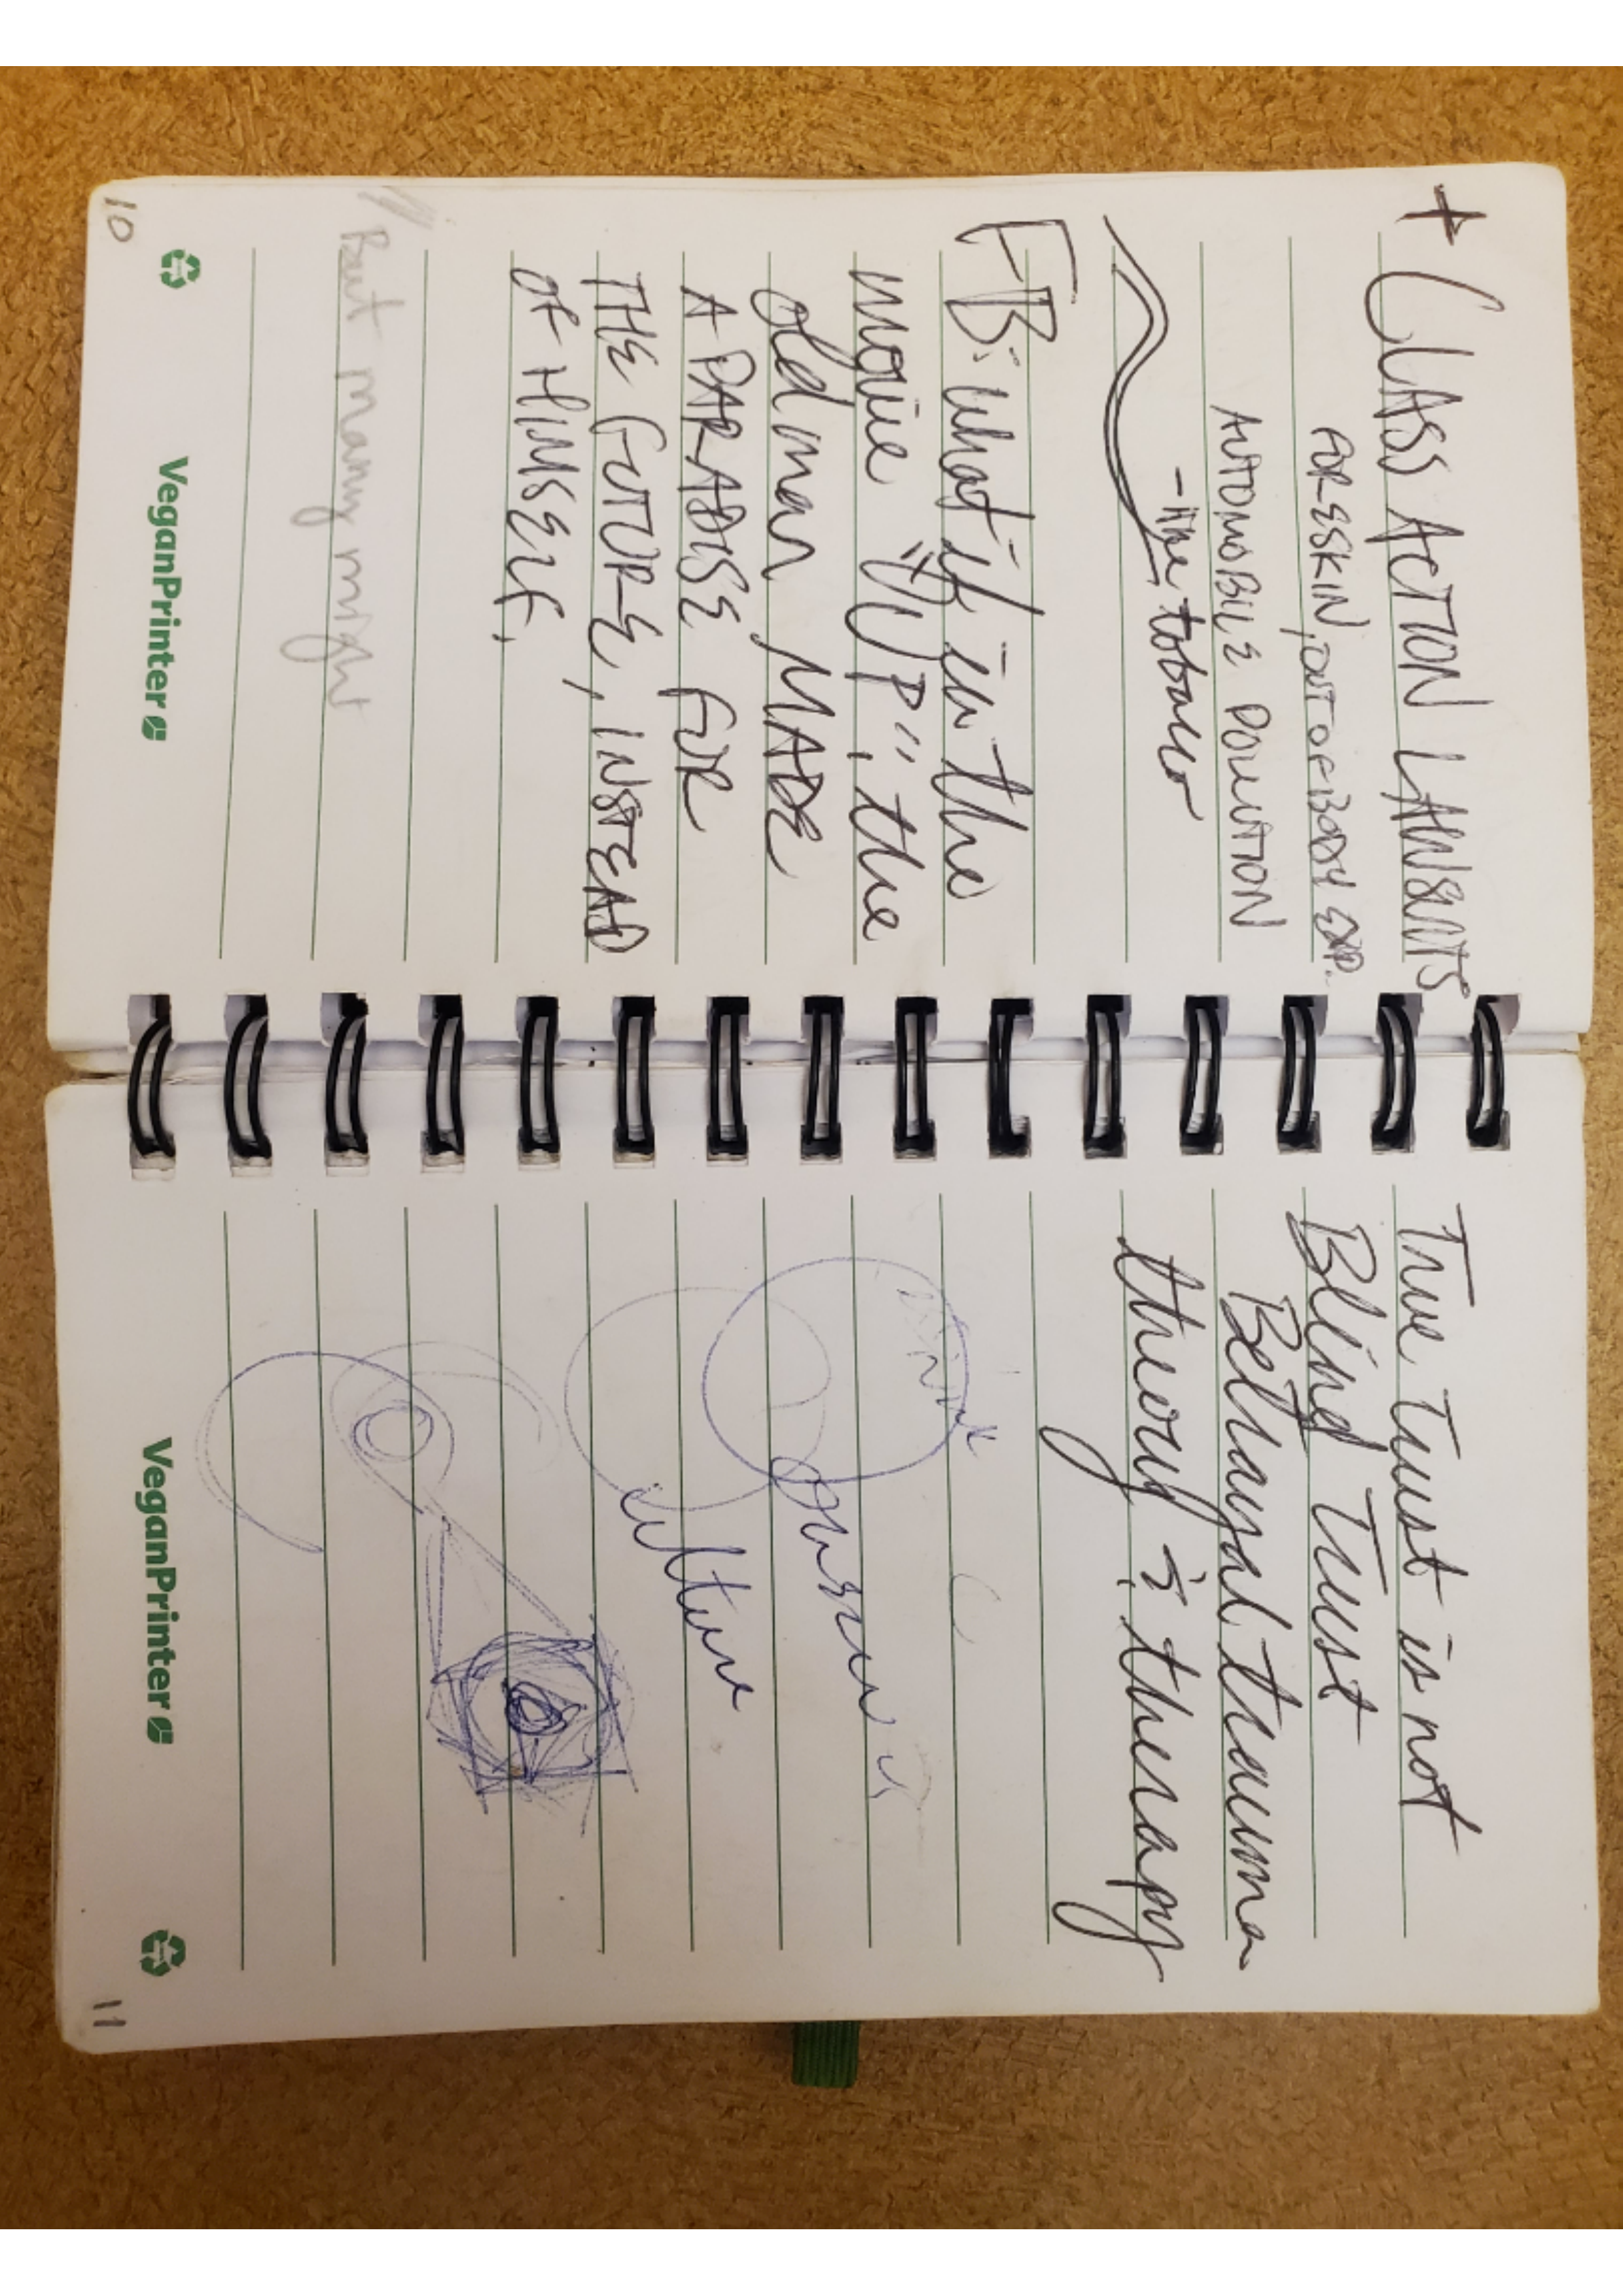 + CLASS ACTION LAWSUITS
FORESKIN, OUT OF BODY EXP.
AUTOMOBILE POLLUTION
- like tobacco
FB: what if in the
movie "UP", the
old man MADE
A PARADISE FOR
THE FUTURE, INSTEAD
OF HIMSELF.
// But many might
10
VeganPrinter
True Trust is not
Blind Trust
Betrayal trauma
theory & therapy
VeganPrinter
11